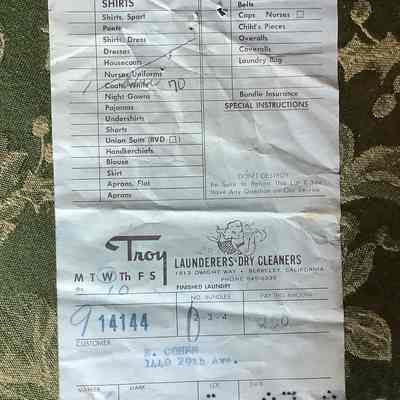 SHIRTS
Shirts, Sport
Pants
Shirts, Dress
Dresses
Housecoats
Nurses Uniforms
Coats, White
70
Night Gowns
Pajamas
Undershirts
Shorts
Union Suits (BVD
Handkerchiefs
Blouse
Skirt
Aprons, Flat
Aprons
Belts
Caps Nurses
Child's Pieces
Overalls
Coveralls
Laundry Bag
Bundle Insurance
SPECIAL INSTRUCTIONS
DON'T DESTROY
Be Sure to Return This List If You
Have Any Question on Our Service
Troy
LAUNDERERS · DRY CLEANERS
1812 DWIGHT WAY • BERKELEY, CALIFORNIA
PHONE
M T W Th F S
FINISHED LAUNDRY
10
NO. BUNDLES
PAY THIS AMOUNT
9 14144
3-4
CUSTOMER
1440 29th Ave.
MARKER
MARK
LOT
DATE